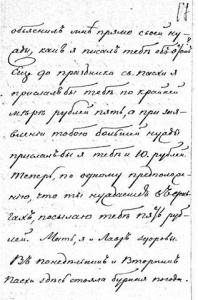 17
объяснилъ мнѣ прямо свою ну-
жду, какъ я писалъ тебѣ объ этомъ
Еще до праздника св. пасхи я
прислалъ бы тебѣ по крайней
мѣрѣ рублей пять, а при заяв-
вленіи тобою большей нужды
прислалъ бы я тебѣ и 10 рублей.
Теперь, по одному предположе-
нію, что ты нуждаешься въ день-
гахъ, посылаю тебѣ пять руб-
лей. Мать, я и Лавръ здоровы.
Въ Понедѣльникъ и Вторникъ
Пасхи здѣсь стояла бурная погода.